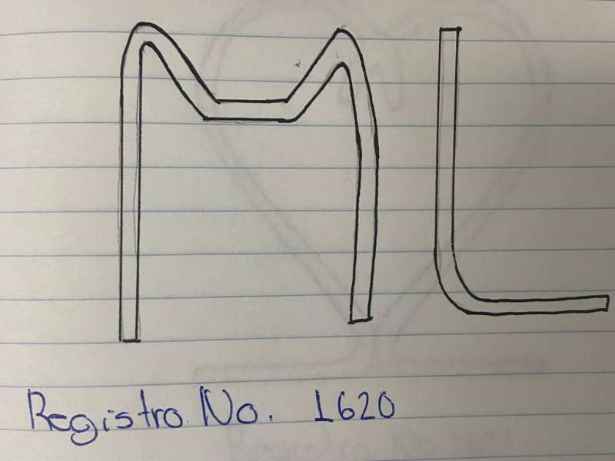 ML
Registro No. 1620